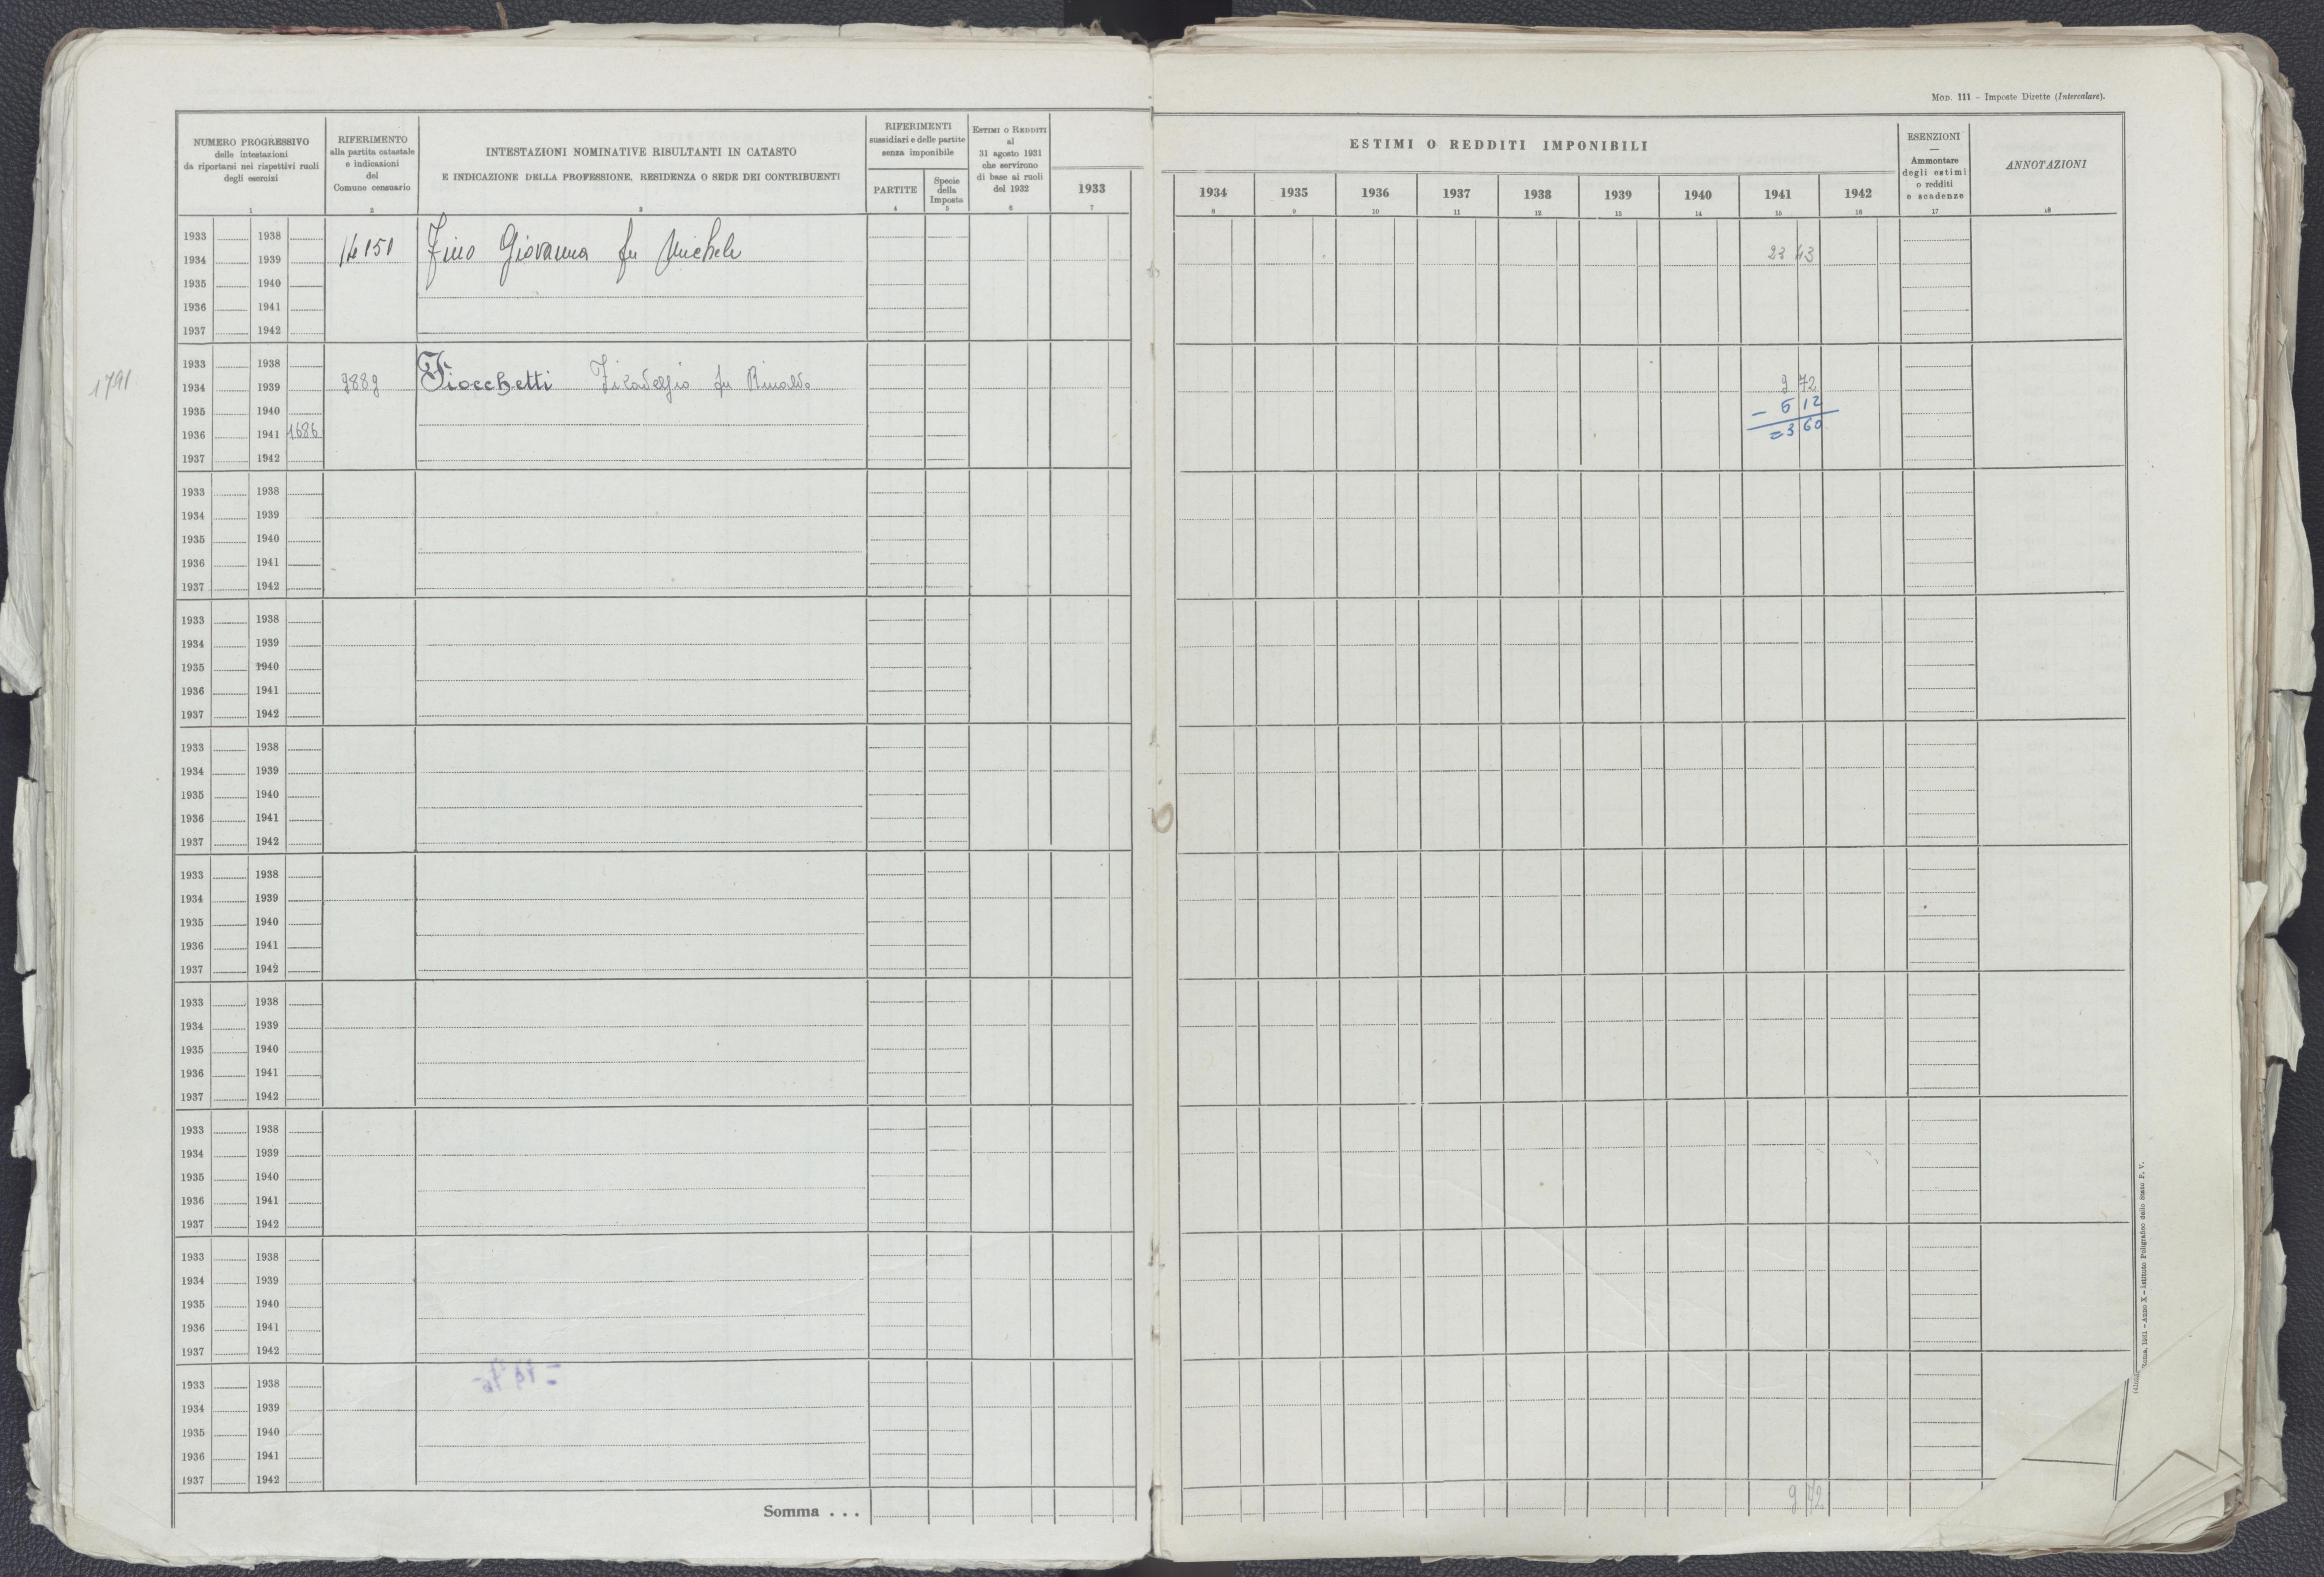 Mod. 111 - Imposte Dirette (Intercalare).
NUMERO PROGRESSIVO
delle intestazioni
da riportarsi nei rispettivi ruoli
degli esercizi
1
RIFERIMENTO
alla partita catastale
e indicazioni
del
Comune censuario
2
INTESTAZIONI NOMINATIVE RISULTANTI IN CATASTO
E INDICAZIONE DELLA PROFESSIONE, RESIDENZA O SEDE DEI CONTRIBUENTI
3
RIFERIMENTI
sussidiari e delle partite
senza imponibile
PARTITE
4
Specie
della
Imposta
5
Estimi o Redditi
al
31 agosto 1931
che servirono
di base ai ruoli
del 1932
6
1933
7
ESTIMI O REDDITI IMPONIBILI
1934 1935 1936 1937 1938 1939 1940 1941 1942
8 9 10 11 12 13 14 15 16
ESENZIONI
—
Ammontare
degli estimi
o redditi
e scadenze
17
ANNOTAZIONI
18
1933 1938
1934 1939 14151 Fino Giovanna fu Michele 23 43
1935 1940
1936 1941
1937 1942
1933 1938
1791 1934 1939 9889 Fiocchetti Filadelfio fu Rinaldo 9 72
1935 1940 - 6 12
1936 1941 1686 = 3 60
1937 1942
1933 1938
1934 1939
1935 1940
1936 1941
1937 1942
1933 1938
1934 1939
1935 1940
1936 1941
1937 1942
1933 1938
1934 1939
1935 1940
1936 1941
1937 1942
1933 1938
1934 1939
1935 1940
1936 1941
1937 1942
1933 1938
1934 1939
1935 1940
1936 1941
1937 1942
1933 1938
1934 1939
1935 1940
1936 1941
1937 1942
1933 1938
1934 1939
1935 1940
1936 1941
1937 1942
1933 1938
1934 1939
1935 1940
1936 1941
1937 1942
Somma . . . 9 72
Roma, 1931 - Anno X - Istituto Poligrafico dello Stato P. V.